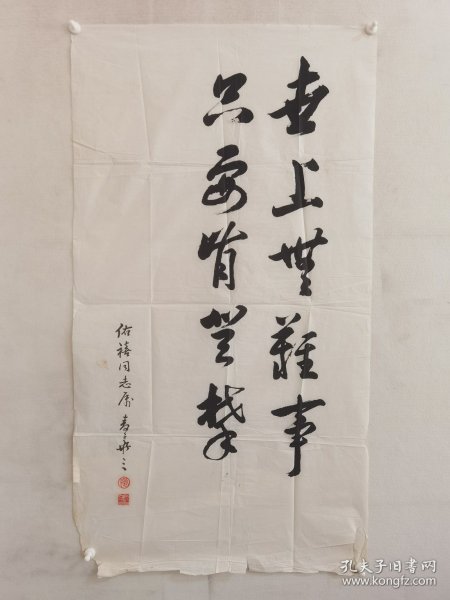 世上無難事
只要肯登攀
佑禧同志屬
孔夫子旧书网
www.kongfz.com